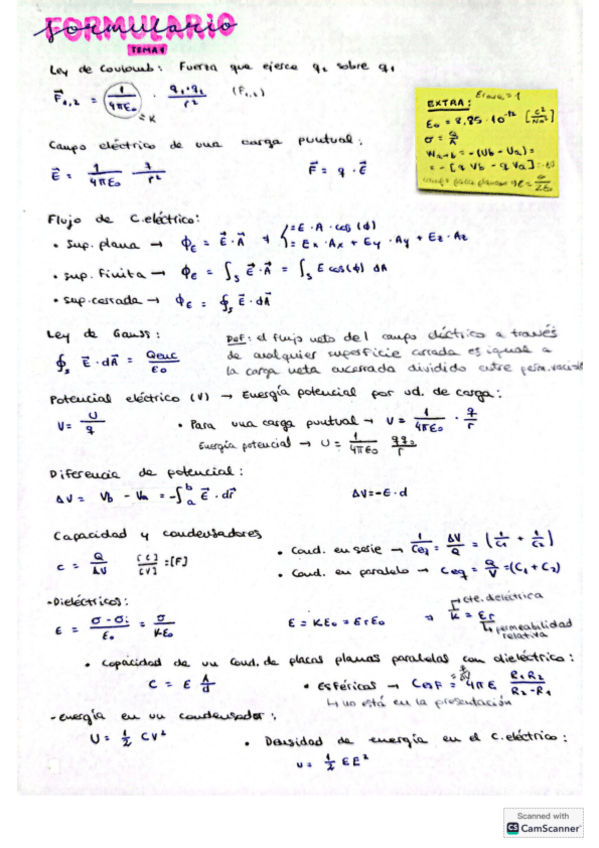 FORMULARIO
formulario
TEMA 1
Ley de Coulomb: Fuerza que ejerce q₂ sobre q₁
F⃗₁,₂ = 1/4πε₀ · q₁·q₂/r² (F₁,₂)
= K
Campo eléctrico de una carga puntual:
E⃗ = 1/4πε₀ q/r² F⃗ = q · E⃗
EXTRA:
ε₀ = 8,85 · 10⁻¹² [C²/Nm²]
σ = Q/A
Wₐ→b = -(Ub - Ua) =
= -[q Vb - q Va]
Flujo de C.eléctrico:
• Sup. plana → ϕE = E⃗ · A⃗ = E · A · cos(ϕ)
= Ex · Ax + Ey · Ay + Ez · Az
• sup. finita → ϕE = ∫s E⃗ · A⃗ = ∫s E cos(ϕ) dA
• sup. cerrada → ϕE = ∮s E⃗ · dA⃗
Ley de Gauss:
∮s E⃗ · dA⃗ = Qenc/ε₀
Def: el flujo neto del campo eléctrico a través
de cualquier superficie cerrada es igual a
la carga neta encerrada dividido entre perm. vacío
Potencial eléctrico (V) → Energía potencial por ud. de carga:
V = U/q • Para una carga puntual → V = 1/4πε₀ · q/r
Energía potencial → U = 1/4πε₀ qq₀/r
Diferencia de potencial:
ΔV = Vb - Va = -∫ₐᵇ E⃗ · dr⃗ ΔV = -E · d
Capacidad y condensadores
C = Q/ΔV [C]/[V] = [F]
• Cond. en serie → 1/Ceq = ΔV/Q = (1/C₁ + 1/C₂)
• Cond. en paralelo → Ceq = Q/V = (C₁ + C₂)
-Dieléctricos:
E = σ - σi/ε₀ = σ/Kε₀ ε = Kε₀ = εrε₀ ⇒ K = εr
cte. dieléctrica
permeabilidad
relativa
• Capacidad de un cond. de placas planas paralelas con dieléctrico:
C = ε A/d • Esféricos → Cesf = 4πε R₁R₂/R₂-R₁
↳ no está en la presentación
-energía en un condensador:
U = 1/2 CV² • Densidad de energía en el C.eléctrico:
u = 1/2 εE²
Scanned with
CS CamScanner